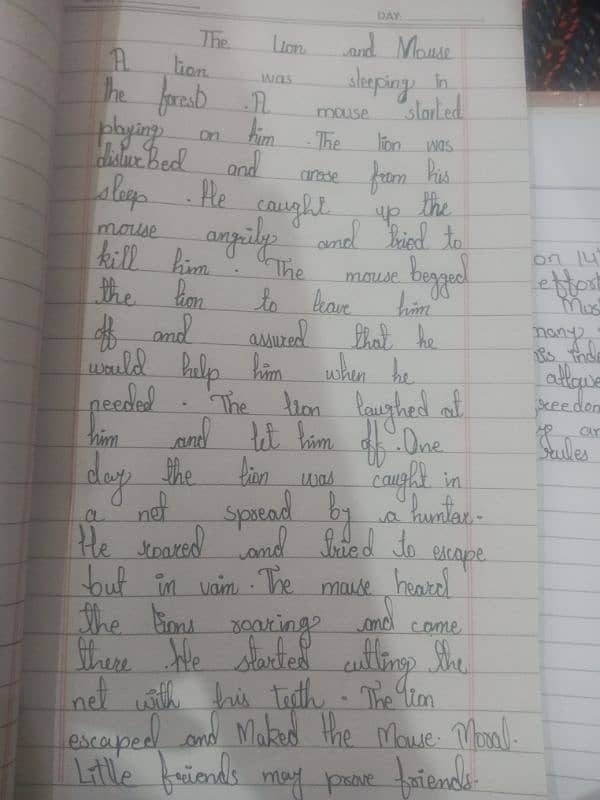 DAY.
The Lion and Mouse
A lion was sleeping in
the forest . A mouse started
playing on him . The lion was
disturbed and arose from his
sleep . He caught up the
mouse angrily and tried to
kill him . The mouse begged
the lion to leave him
off and assured that he
would help him when he
needed . The lion laughed at
him and let him off . One
day the lion was caught in
a net spread by a hunter .
He roared and tried to escape
but in vain . The mouse heard
the lions roaring and came
there . He started cutting the
net with his teeth . The lion
escaped and Maked the Mouse . Moral .
Little freiends may prove friends .
on 14
effort
Mus
many
allowe
reedom
rules